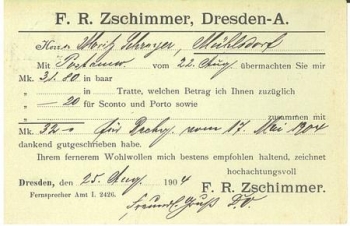 F. R. Zschimmer, Dresden-A.
Herrn Moritz Schroyer, Mühlsdorf
Mit Postanw. vom 22. Aug übermachten Sie mir
Mk. 31.80 in baar
„ — in Tratte, welchen Betrag ich Ihnen zuzüglich
„ —20 für Sconto und Porto sowie
„ zusammen mit
Mk. 32.- für Rechg. vom 17. Mai 1904
dankend gutgeschrieben habe.
Ihrem ferneren Wohlwollen mich bestens empfohlen haltend, zeichnet
hochachtungsvoll
Dresden, den 25. Aug. 1904
F. R. Zschimmer.
Fernsprecher Amt I. 2426.
Freundl. Gruß